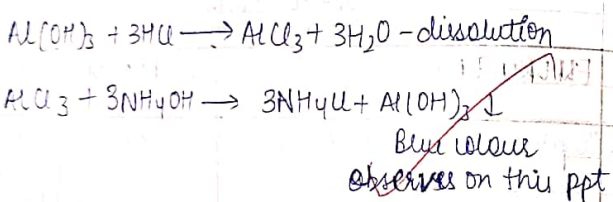 Al(OH)3 + 3HCl ⟶ AlCl3 + 3H2O - dissolution
AlCl3 + 3NH4OH ⟶ 3NH4Cl + Al(OH)3 ↓
Blue colour
observes on this ppt